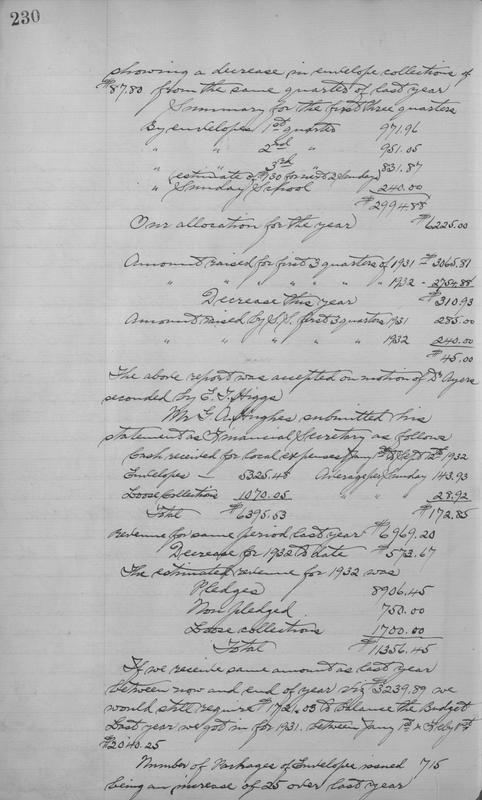 230
showing a decrease in envelope collections of
$87.80 from the same quarter of last year
Summary for the first three quarters
By envelopes 1st quarter 971.96
" " 2nd " 951.05
" " 3rd " 831.87
(estimate of $730 for next 2 Sundays)
" Sunday School 240.00
$2994.88
Our allocation for the year $6225.00
Amount raised for first 3 quarters of 1931 - $3065.81
" " " " " " " 1932 - 2754.88
Decrease this year $310.93
Amount raised by S.S. first 3 quarters 1931 285.00
" " " " " " 1932 240.00
$45.00
The above report was accepted on motion of Dr Ayers
seconded by E. J. Higgs
Mr F. A. Hughes submitted his
statement as Financial Secretary as follows
Cash received for local expenses Jany to Sept 12th 1932
Envelopes - 5325.48 Average per Sunday 143.93
Loose Collections 1070.05 " " " 28.92
Total $6395.53 $172.85
Revenue for same period last year $6969.20
Decrease for 1932 to date $573.67
The estimated revenue for 1932 was
Pledges 8906.45
Non pledged 750.00
Loose collections 1700.00
Total $11356.45
If we receive same amount as last year
between now and end of year viz $3239.89 we
would still require $1721.03 to balance the Budget
Last year we got in for 1931 between Jany 1st & Feby 8th
$2040.25
Number of Packages of Envelopes issued 715
being an increase of 25 over last year